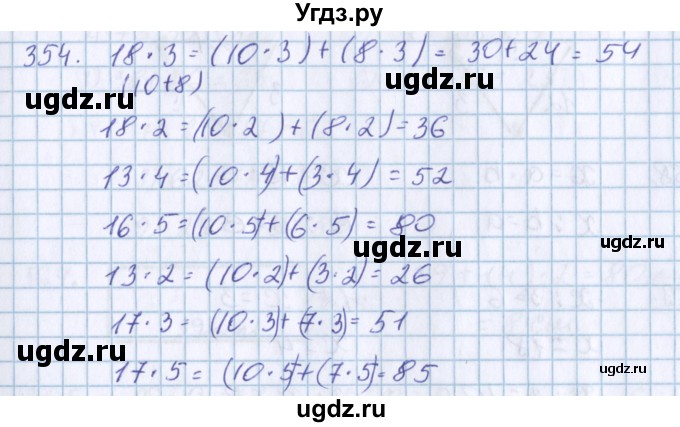 Угдз.ру
354. 18 · 3 = (10 · 3) + (8 · 3) = 30 + 24 = 54
(10+8)
ugdz.ru ugdz.ru
18 · 2 = (10 · 2) + (8 · 2) = 36
13 · 4 = (10 · 4) + (3 · 4) = 52
16 · 5 = (10 · 5) + (6 · 5) = 80
ugdz.ru
13 · 2 = (10 · 2) + (3 · 2) = 26
17 · 3 = (10 · 3) + (7 · 3) = 51
ugdz.ru ugdz.ru
17 · 5 = (10 · 5) + (7 · 5) = 85
ugdz.ru